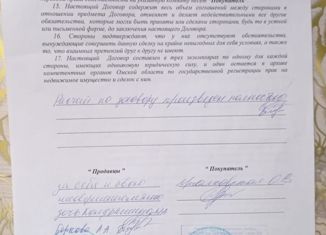 15. Настоящий Договор содержит весь объем соглашений между сторонами в
отношении предмета Договора, отменяет и делает недействительными все другие
обязательства, которые могли быть приняты или сделаны сторонами, будь то в устной
или письменной форме, до заключения настоящего Договора.
16. Стороны подтверждают, что у них отсутствуют обстоятельства,
вынуждающие совершить данную сделку на крайне невыгодных для себя условиях, а также
то, что взаимных претензий друг к другу не имеют.
17. Настоящий Договор составлен в трех экземплярах по одному для каждой
стороны, имеющих одинаковую юридическую силу, и один остается в архиве
компетентных органов Омской области по государственной регистрации прав на
недвижимое имущество и сделок с ним.
Расчет по договору произведен полностью
" Продавцы " " Покупатель "
за себя и свою
несовершеннолетнюю
дочь